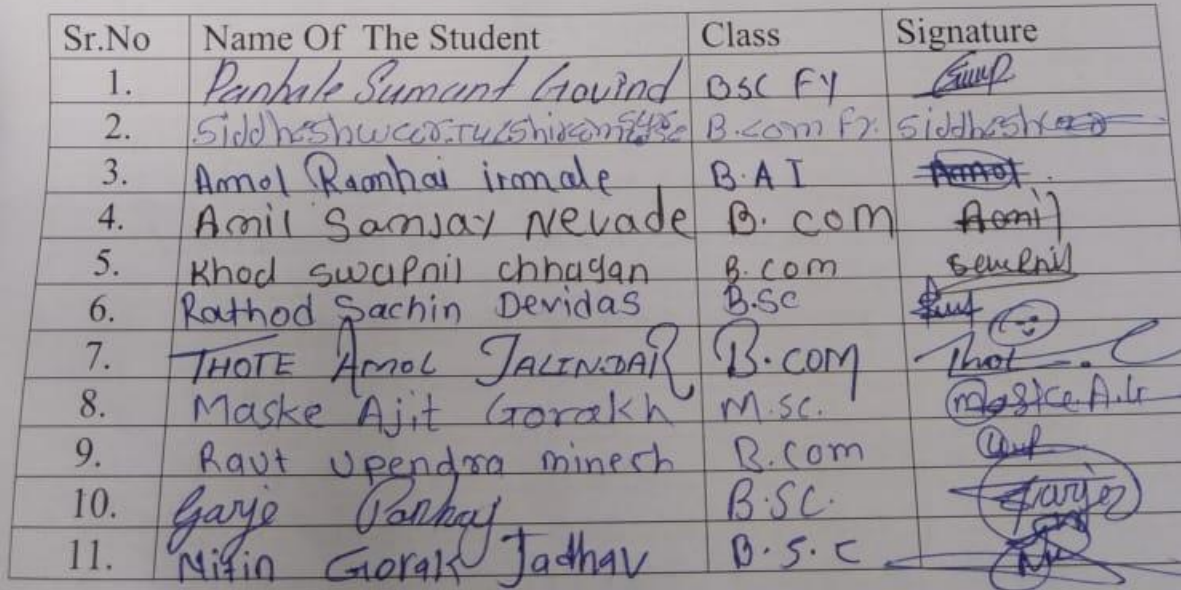 Sr.No Name Of The Student Class Signature
1. Panhale Sumant Govind BSC FY
2. B.com Fy. Siddhesh
3. Amol irmale B.A I Amol
4. Amil Samjay Nevade B. com Aomil
5. Khod swapnil chhagan B.com
6. Rathod Sachin Devidas B.SC
7. THOTE AMOL JALINDAR B.COM Thot
8. Maske Ajit Gorakh M.SC. Maske.A.G
9. Raut Upendra minesh B.com
10. Garje Pankaj B.SC. Garje
11. Nitin Gorakh Jadhav B.S.C